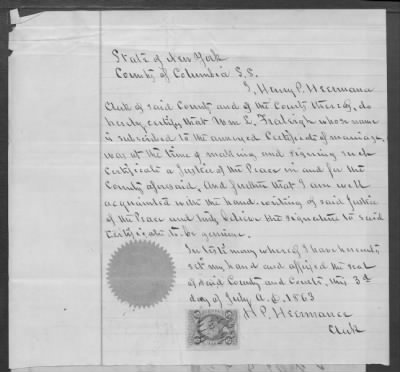 State of New York
County of Columbia S.S.
I, Henry P. Heermance
Clerk of said County and of the Courts thereof, do
hereby certify that Wm L. Fraleigh whose name
is subscribed to the annexed Certificate of marriage,
was at the time of making and signing such
Certificate a Justice of the Peace in and for the
County aforesaid, And further that I am well
acquainted with the hand-writing of said Justice
of the Peace and verily believe the signature to said
Certificate to be genuine.
In testimony whereof I have hereunto
set my hand and affixed the seal
of said County and Courts, this 3d
day of July A.D. 1863
H P. Heermance
Clerk